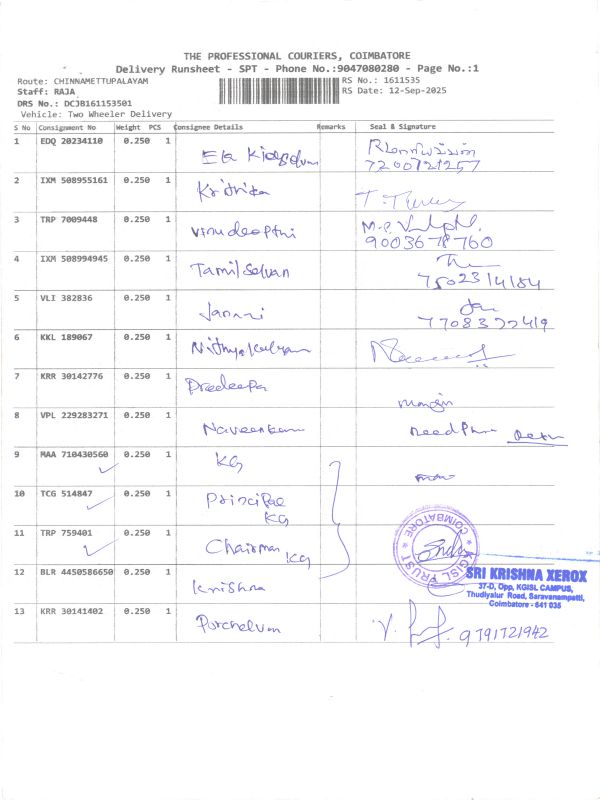 THE PROFESSIONAL COURIERS, COIMBATORE
Delivery Runsheet - SPT - Phone No.:9047080280 - Page No.:1
Route: CHINNAMETTUPALAYAM RS No.: 1611535
Staff: RAJA RS Date: 12-Sep-2025
DRS No.: DCJB161153501
Vehicle: Two Wheeler Delivery
S No Consignment No Weight PCS Consignee Details Remarks Seal & Signature
1 EDQ 20234110 0.250 1
7200721257
2 IXM 508955161 0.250 1 Krithika
3 TRP 7009448 0.250 1 Virudeepthi
9003678760
4 IXM 508994945 0.250 1 Tamil Selvan
7502314184
5 VLI 382836 0.250 1 Janani
7708377419
6 KKL 189067 0.250 1 Nithyakalyani
7 KRR 30142776 0.250 1 Pradeepa
8 VPL 229283271 0.250 1 Naveenkumar
9 MAA 710430560 0.250 1 KG
10 TCG 514847 0.250 1 Principal
KG
11 TRP 759401 0.250 1 Chairman KG
KGISL TRUST COIMBATORE
12 BLR 4450586650 0.250 1 Krishna
SRI KRISHNA XEROX
37-D, Opp, KGISL CAMPUS,
Thudiyalur Road, Saravanampatti,
Coimbatore - 641 035
13 KRR 30141402 0.250 1 Porchelvan 9791721942